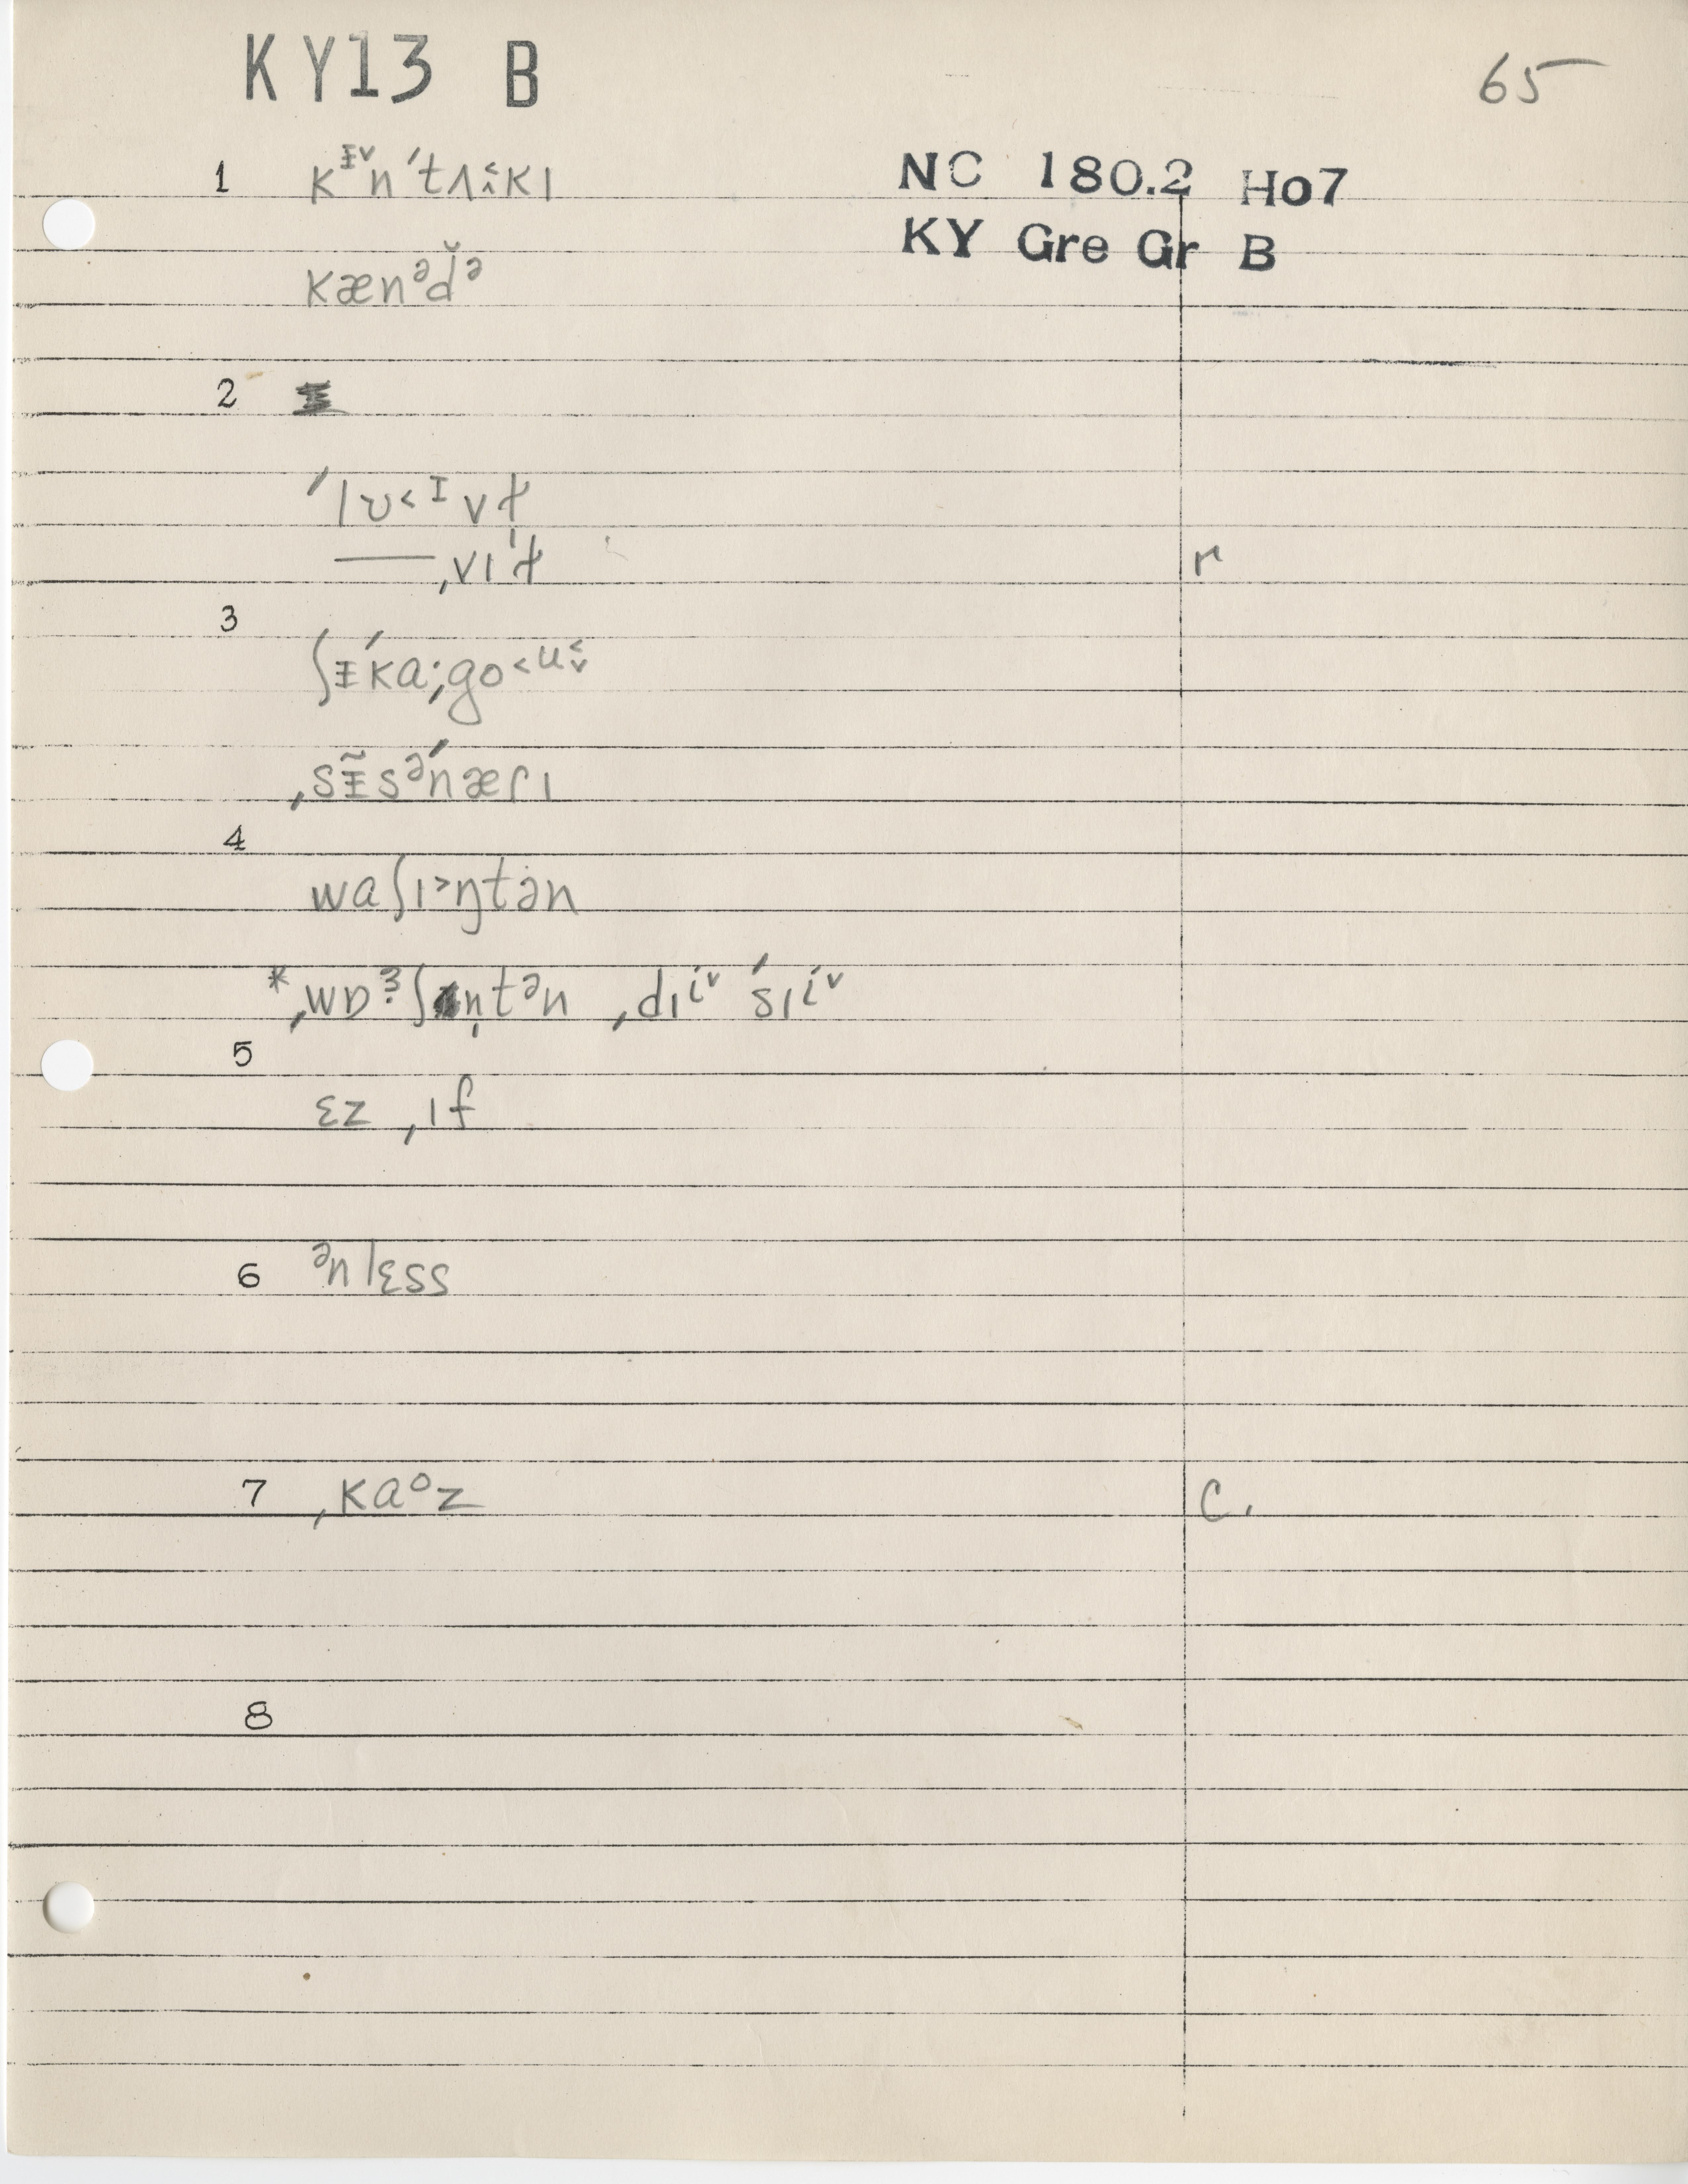 KY13 B
65
NC 180.2 Ho7
KY Gre Gr B
1 kᵻ˅n ˈtʌ˂˄kɪ
kænᵊd̆ᵊ
2
ˈlʊ˂ᵻvɫ
——ˌvɪɫ̩ r
3
ʃᵻˈkɑ;go˂ᵘ˂˅
ˌsᵻ̃sᵊˈnæɾɪ
4
wɑʃɪ˃ŋtən
*ˌwɒɝʃn̩tᵊn ˌdɪⁱ˅ ˈsɪⁱ˅
5
ɛz ˌɪf
6 ᵊnlɛss
7 ˌkaᵒz c.
8